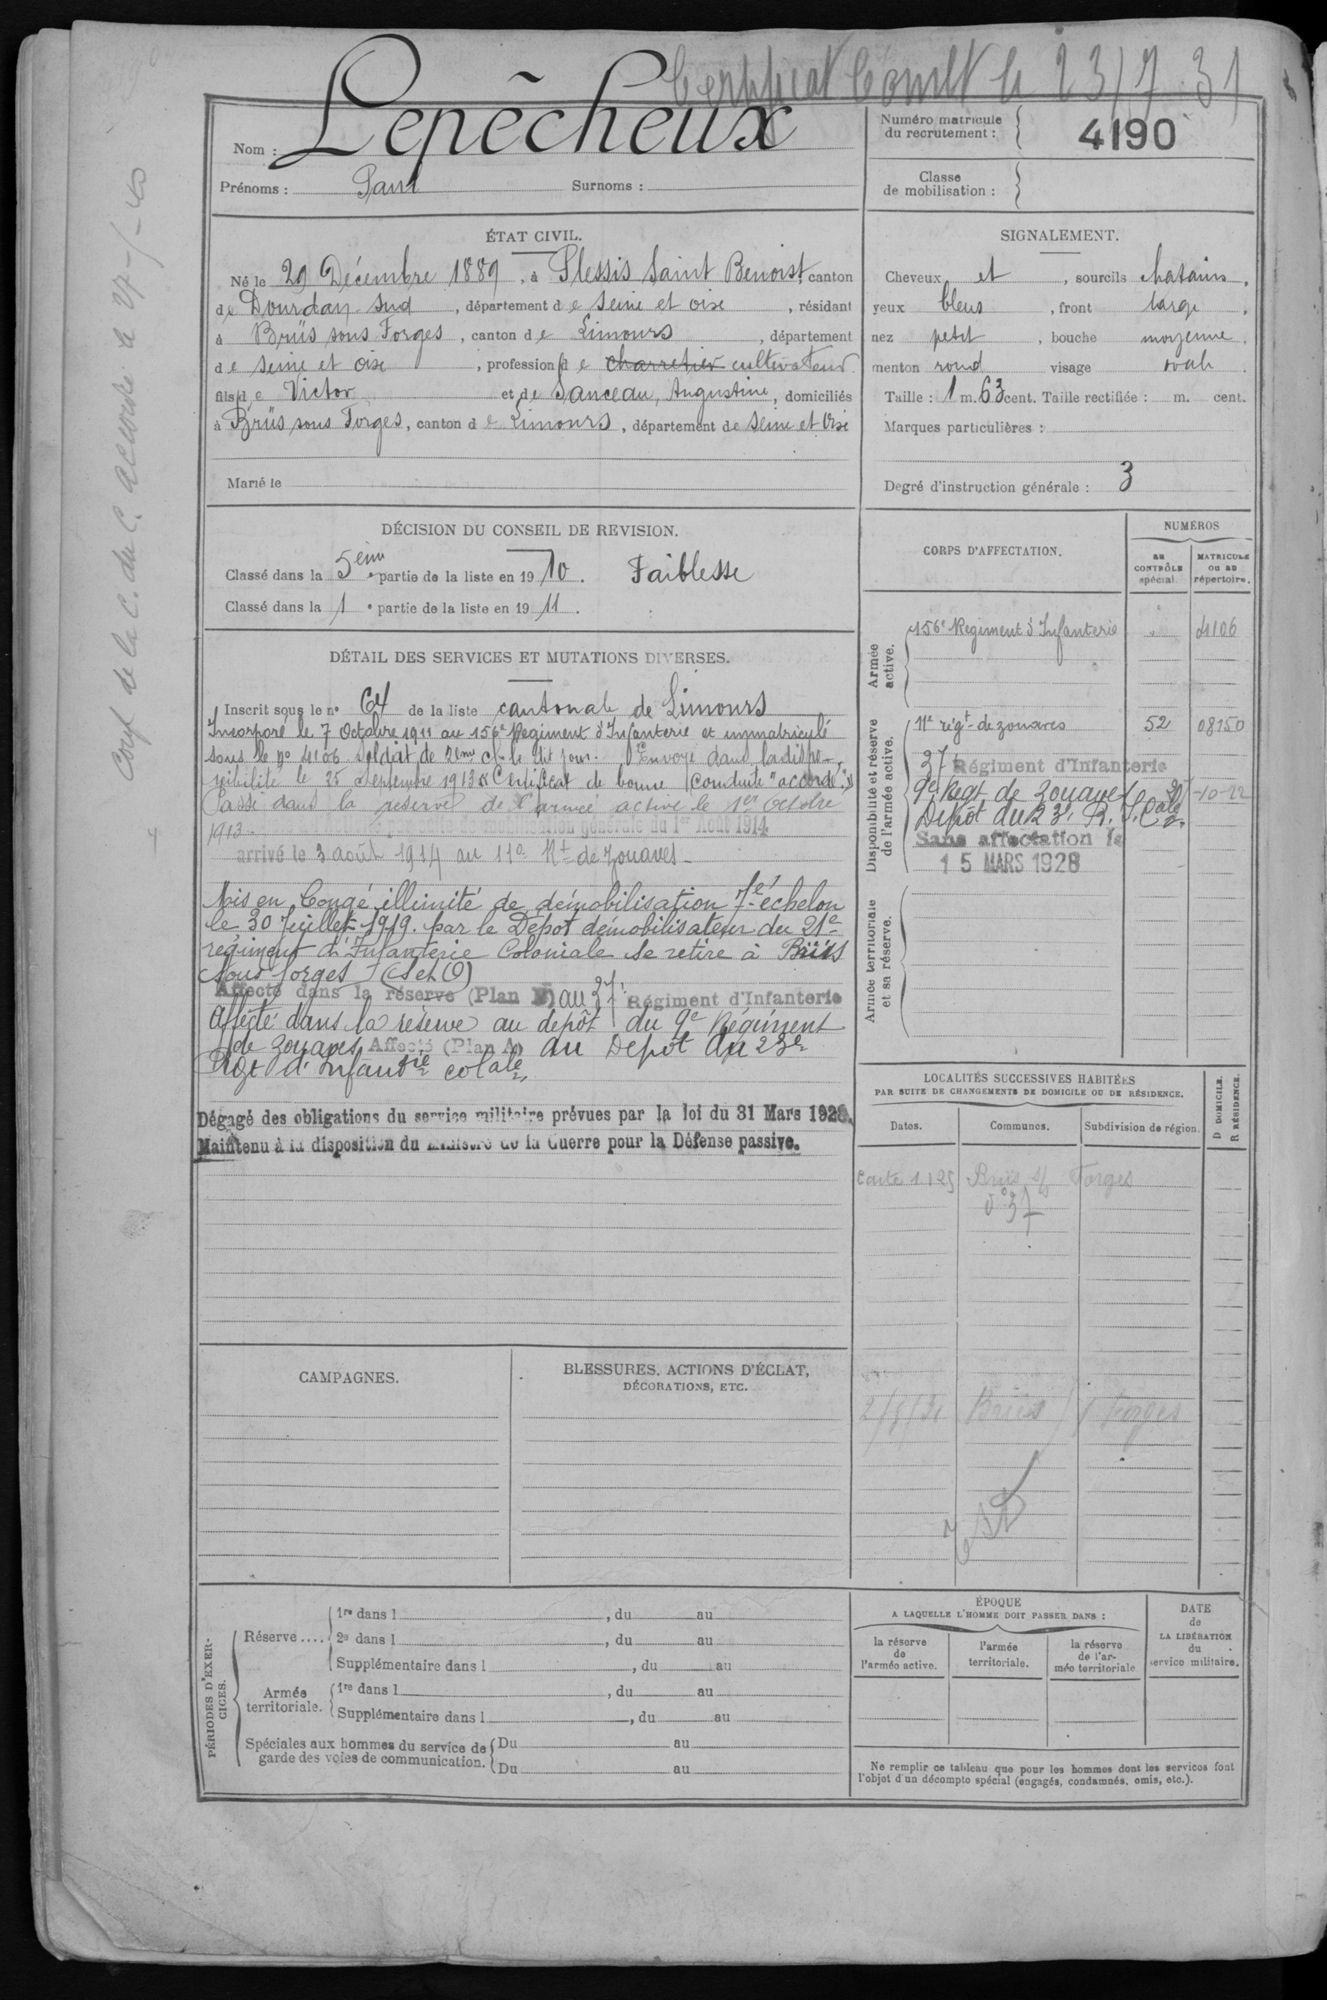 Certificat Combt le 23/7 31
Nom : Lepêcheux
Prénoms : Paul Surnoms :
Numéro matricule du recrutement : 4190
Classe de mobilisation :
ÉTAT CIVIL.
Né le 29 Décembre 1889, à Plessis Saint Benoist, canton
de Dourdan sud, département de Seine et oise, résidant
à Briis sous Forges, canton de Limours, département
de Seine et oise, profession de charretier cultivateur
fils de Victor et de Sanceau, Augustine, domiciliés
à Briis sous Forges, canton de Limours, département de Seine et Oise
Marié le
SIGNALEMENT.
Cheveux et, sourcils chatains,
yeux bleus, front large,
nez petit, bouche moyenne,
menton rond visage ovale
Taille : 1 m. 63 cent. Taille rectifiée : m. cent.
Marques particulières :
Degré d'instruction générale : 3
DÉCISION DU CONSEIL DE REVISION.
Classé dans la 5eme partie de la liste en 1910. Faiblesse
Classé dans la 1e partie de la liste en 1911.
DÉTAIL DES SERVICES ET MUTATIONS DIVERSES.
Inscrit sous le no 64 de la liste cantonale de Limours
Incorporé le 7 Octobre 1911 au 156e Régiment d'Infanterie et immatriculé
sous le no 4106 soldat de 2eme cl. le dit jour. Envoyé dans la dispo-
nibilité le 25 Septembre 1913 « Certificat de bonne Conduite "accordé" »
Passé dans la réserve de l'armée active le 1er Octobre
1913. générale du 1er Août 1914
arrivé le 3 août 1914 au 11e Rt de Zouaves
Mis en Congé illimité de démobilisation 7e échelon
le 30 Juillet 1919 par le Dépot démobilisateur du 21e
régiment d'Infanterie Coloniale se retire à Briis
sous forges (S et O)
Affecté dans la réserve (Plan ) au 37e Régiment d'Infanterie
Affecté dans la réserve au dépôt du 9e Régiment
de zouaves Affecté (Plan A) au Dépot du 23e
Rgt d'Infantie colale
Dégagé des obligations du service militaire prévues par la loi du 31 Mars 1928.
Maintenu à la disposition du Ministre de la Guerre pour la Défense passive.
CORPS D'AFFECTATION.
NUMÉROS
AU CONTRÔLE spécial.
MATRICULE OU AU répertoire.
Armée active.
156e Régiment d'Infanterie " 4106
Disponibilité et réserve de l'armée active.
11e régt de zouaves 52 08150
37 Régiment d'Infanterie
9e Regt de Zouaves 27-10-22
Dépôt du 23e R. I. Cale
Sans affectation le
15 MARS 1928
Armée territoriale et sa réserve.
LOCALITÉS SUCCESSIVES HABITÉES
PAR SUITE DE CHANGEMENTS DE DOMICILE OU DE RÉSIDENCE.
Dates. Communes. Subdivision de région. D DOMICILE. R RÉSIDENCE.
Carte 1 125 Briis s/ Forges
37
2/8/31 Briis s/ Forges
CAMPAGNES.
BLESSURES, ACTIONS D'ÉCLAT,
DÉCORATIONS, ETC.
PÉRIODES D'EXERCICES.
Réserve....
1re dans l , du au
2e dans l , du au
Supplémentaire dans l , du au
Armée territoriale.
1re dans l , du au
Supplémentaire dans l , du au
Spéciales aux hommes du service de garde des voies de communication.
Du au
Du au
ÉPOQUE
A LAQUELLE L'HOMME DOIT PASSER DANS :
la réserve de l'armée active.
l'armée territoriale.
la réserve de l'armée territoriale
DATE de LA LIBÉRATION du service militaire.
Ne remplir ce tableau que pour les hommes dont les services font
l'objet d'un décompte spécial (engagés, condamnés, omis, etc.).
de la C. du C. accordé le 27